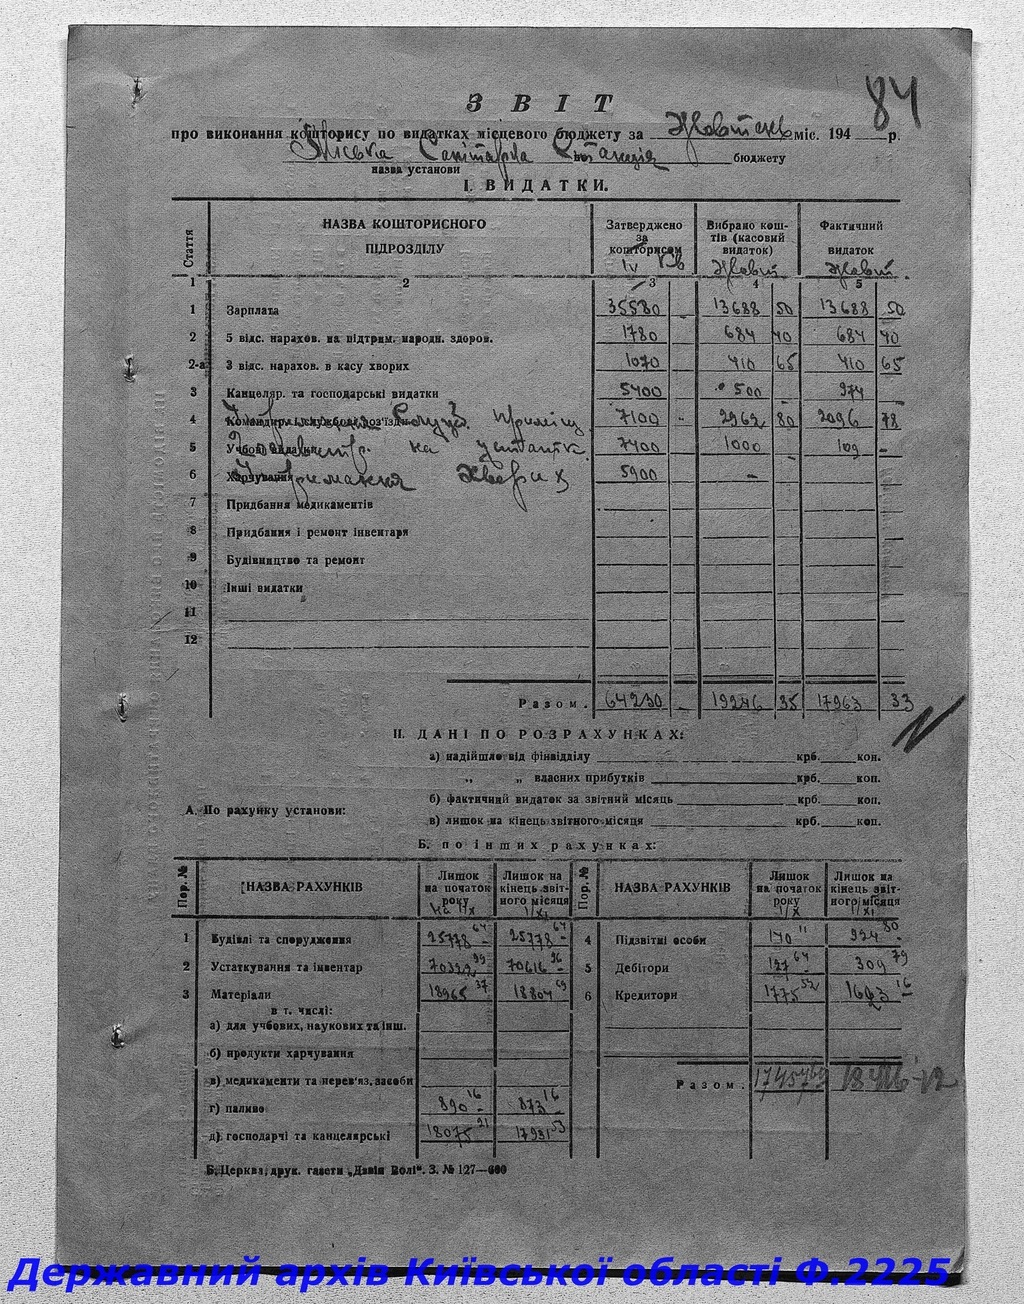 84
ЗВІТ
про виконання кошторису по видатках місцевого бюджету за Жовтень міс. 194 р.
Міська Санітарна Станція бюджету
назва установи
I. ВИДАТКИ.
Стаття НАЗВА КОШТОРИСНОГО ПІДРОЗДІЛУ Затверджено за кошторисом IV кв Вибрано коштів (касовий видаток) Жовт. Фактичний видаток Жовт.
1 2 3 4 5
1 Зарплата 35580 - 13688 50 13688 50
2 5 відс. нарахов. на підтрим. народн. здоров. 1780 684 40 684 40
2-а 3 відс. нарахов. в касу хворих 1070 410 65 410 65
3 Канцеляр. та господарські видатки 5400 500 - 974 -
4 Командир. і службові роз'їзди 7100 - 2962 80 2096 78
5 Учбові видатки на 7400 1000 109 -
6 Харчування Утримання Хворих 5900 -
7 Придбання медикаментів
8 Придбання і ремонт інвентаря
9 Будівництво та ремонт
10 Інші видатки
11
12
Разом. 64230 - 19246 35 17963 33
II. ДАНІ ПО РОЗРАХУНКАХ:
а) надійшло від фінвідділу крб. коп.
„ „ власних прибутків крб. коп.
б) фактичний видаток за звітний місяць крб. коп.
А. По рахунку установи:
в) лишок на кінець звітного місяця крб. коп.
Б. по інших рахунках:
Пор. № НАЗВА РАХУНКІВ Лишок на початок року на 1/X Лишок на кінець звітного місяця 1/XI Пор. № НАЗВА РАХУНКІВ Лишок на початок року 1/X Лишок на кінець звітного місяця 1/XI
1 Будівлі та спорудження 25778 64 25778 64 4 Підзвітні особи 170 11 924 80
2 Устаткування та інвентар 70322 99 70616 96 5 Дебітори 127 64 309 79
3 Матеріали 18965 37 18804 69 6 Кредитори 1775 52 16 16
в т. числі:
а) для учбових, наукових та інш.
б) продукти харчування
в) медикаменти та перев'яз. засоби Разом.
г) паливо 890 16 873 16
д) господарчі та канцелярські 18075 21 17931 53
Б. Церква, друк. газети „Дзвін Волі“. З. № 127—600
Державний архів Київської області Ф.2225